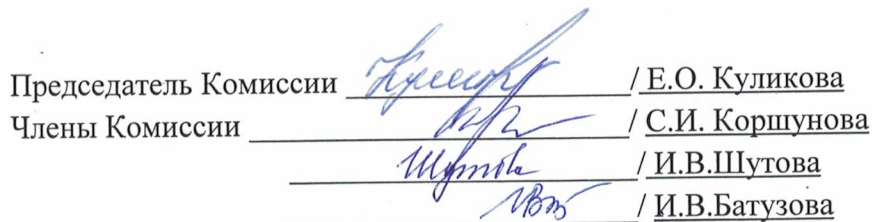 Председатель Комиссии / Е.О. Куликова
Члены Комиссии / С.И. Коршунова
/ И.В.Шутова
/ И.В.Батузова